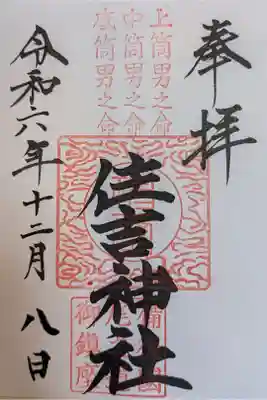 奉拝
上筒男之命
中筒男之命
底筒男之命
住吉神社
令和六年十二月八日
御鎮座